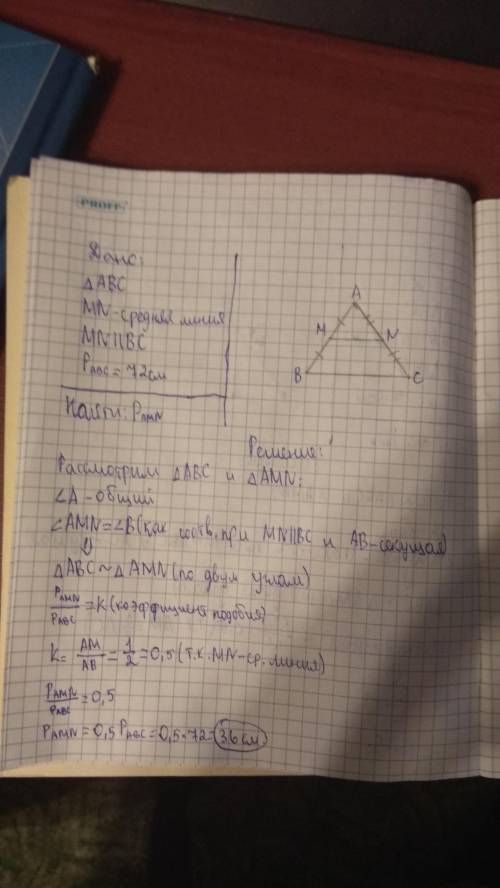 PROFF
Дано:
△ABC
MN-средняя линия
MN||BC
P_ABC = 72см
Найти: P_AMN
A
M
N
B
C
Решение:
Рассмотрим △ABC и △AMN:
∠A - общий
∠AMN=∠B(как соотв. при MN||BC и AB-секущая)
⇓
△ABC ~ △AMN(по двум углам)
P_AMN/P_ABC = K(коэффициент подобия)
K = AM/AB = 1/2 = 0,5 (т.к. MN-ср. линия)
P_AMN/P_ABC = 0,5
P_AMN = 0,5 P_ABC = 0,5·72 = 36 см